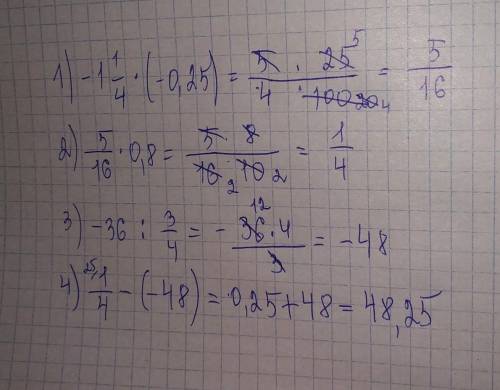 1) -1 1/4 · (-0,25) = 5 · 25 5 / 4 · 100 20 4 = 5/16
2) 5/16 · 0,8 = 5 · 8 / 16 2 · 10 2 = 1/4
3) -36 : 3/4 = - 36 12 · 4 / 3 = -48
4) 25, 1/4 - (-48) = 0,25 + 48 = 48,25